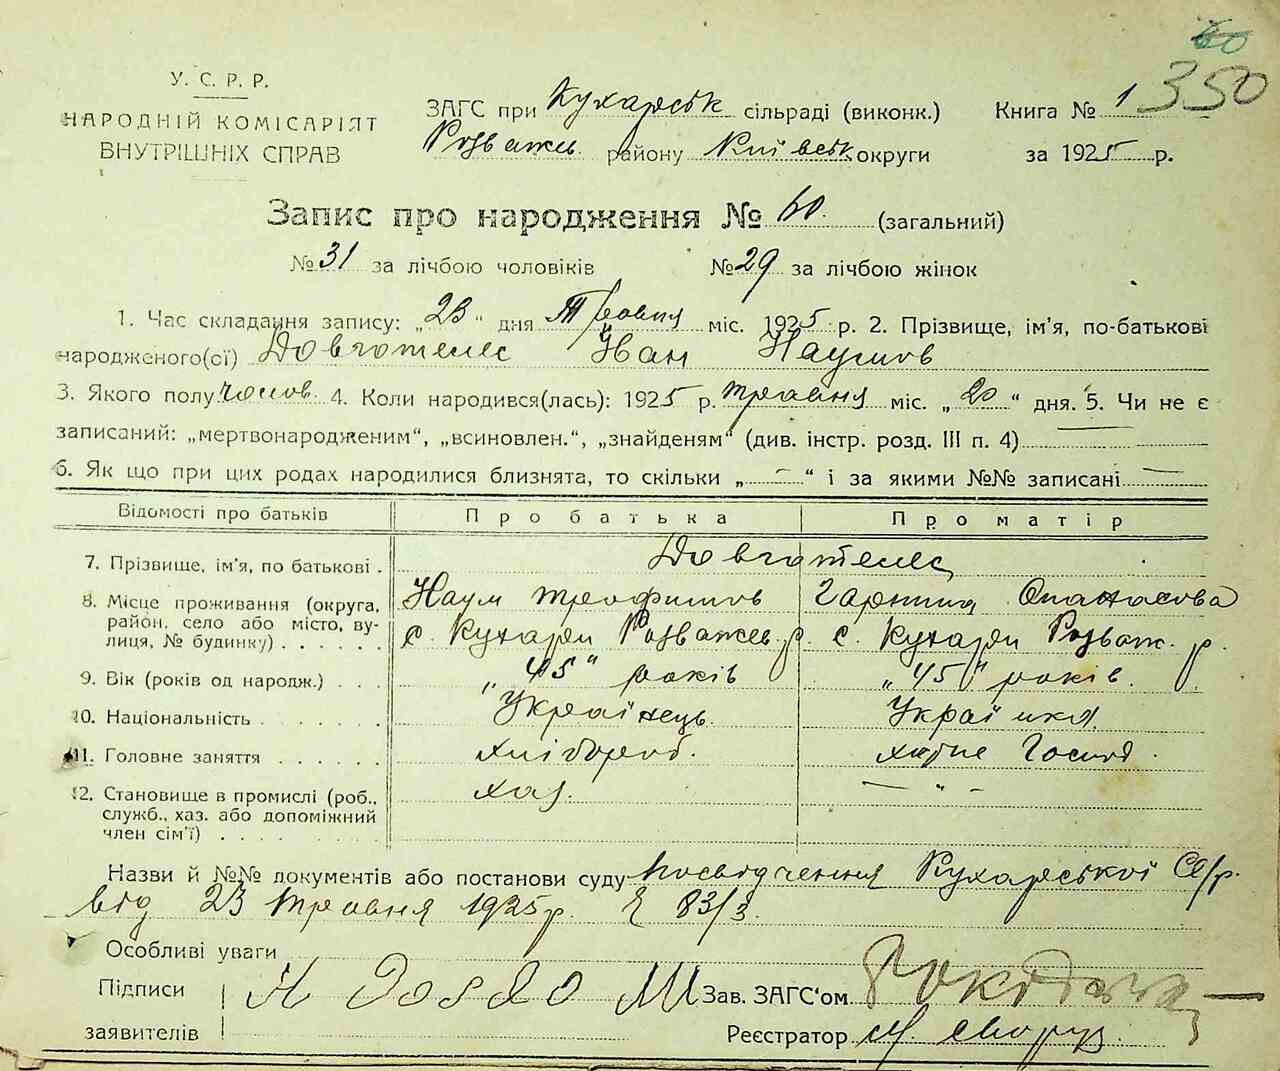 60
350
У. С. Р. Р.
НАРОДНІЙ КОМІСАРІЯТ
ВНУТРІШНІХ СПРАВ
ЗАГС при Кухарськ сільраді (виконк.) Книга № 1
Розважев району Київськ округи за 1925 р.
Запис про народження № 60. (загальний)
№ 31 за лічбою чоловіків № 29 за лічбою жінок
1. Час складання запису: „23" дня Травня міс. 1925 р. 2. Прізвище, ім'я, по-батькові
народженого(ої) Довготелес Іван Наумов
3. Якого полу чолов. 4. Коли народився(лась): 1925 р. травня міс. „20" дня. 5. Чи не є
записаний: „мертвонародженим", „всиновлен.", „знайденям" (див. інстр. розд. III п. 4)
6. Як що при цих родах народилися близнята, то скільки „—" і за якими №№ записані —
Відомості про батьків Про батька Про матір
7. Прізвище, ім'я, по батькові . Довготелес
Наум Трофимов Гарпина Опанасова
8. Місце проживання (округа, район, село або місто, вулиця, № будинку) . . . . . . с. Кухари Розважев. р. с. Кухари Розваж. р.
9. Вік (років од народж.) . . . „45" років „45" років.
10. Національність . . . . . . . Українець. Українка.
11. Головне заняття . . . . . . хлібороб. хатне Господ.
12. Становище в промислі (роб., служб., хаз. або допоміжний член сім'ї) . . . . . хаз. — „ -
Назви й №№ документів або постанови суду посвідчення Кухарської С/р.
від 23 травня 1925 р. № 83/3.
Особливі уваги
Підписи
заявителів
Н Довго
Зав. ЗАГС'ом
Реєстратор